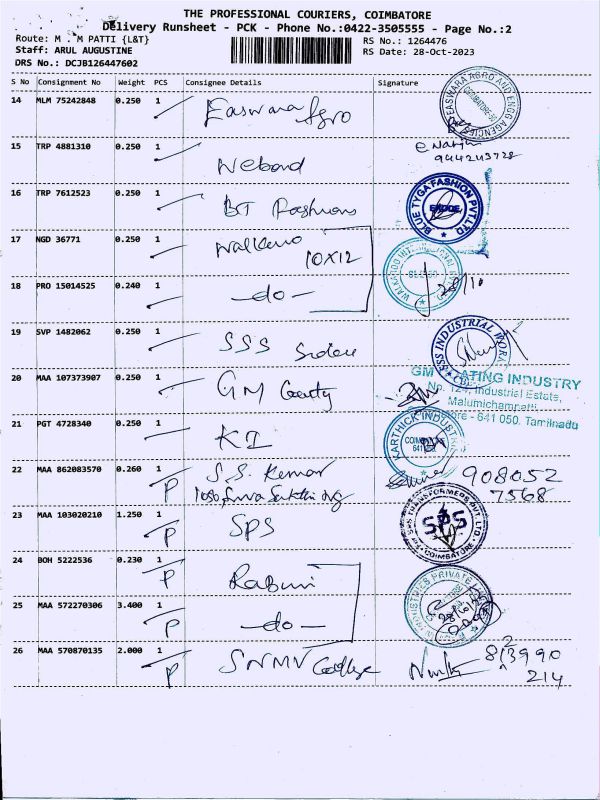 THE PROFESSIONAL COURIERS, COIMBATORE
Delivery Runsheet - PCK - Phone No.:0422-3505555 - Page No.:2
Route: M . M PATTI {L&T}
RS No.: 1264476
Staff: ARUL AUGUSTINE
RS Date: 28-Oct-2023
DRS No.: DCJB126447602
S No Consignment No Weight PCS Consignee Details Signature
14 MLM 75242848 0.250 1 Easwara Agro
EASWARA AGRO AND ENGG AGENCIES
15 TRP 4881310 0.250 1
16 TRP 7612523 0.250 1 BT Fashions
BLUE TYGA FASHION PVT.LTD
ERODE
17 NGD 36771 0.250 1
10X12
18 PRO 15014525 0.240 1 -do-
28/10
19 SVP 1482062 0.250 1 SSS
SSS INDUSTRIAL WORKS
20 MAA 107373907 0.250 1 GM
GM COATING INDUSTRY
No. 124, Industrial Estate,
Malumichampatti,
Coimbatore - 641 050. Tamilnadu
21 PGT 4728340 0.250 1 KI
KARTHICK INDUSTRIES
COIMBATORE
22 MAA 862083570 0.260 1 P S.S. Kumar
908052
7568
23 MAA 103020210 1.250 1 P SPS
SPS TRANSFORMERS PVT. LTD.
SPS
COIMBATORE
24 BOH 5222536 0.230 1 P
25 MAA 572270306 3.400 1 P -do-
26 MAA 570870135 2.000 1 P SNMV College
214